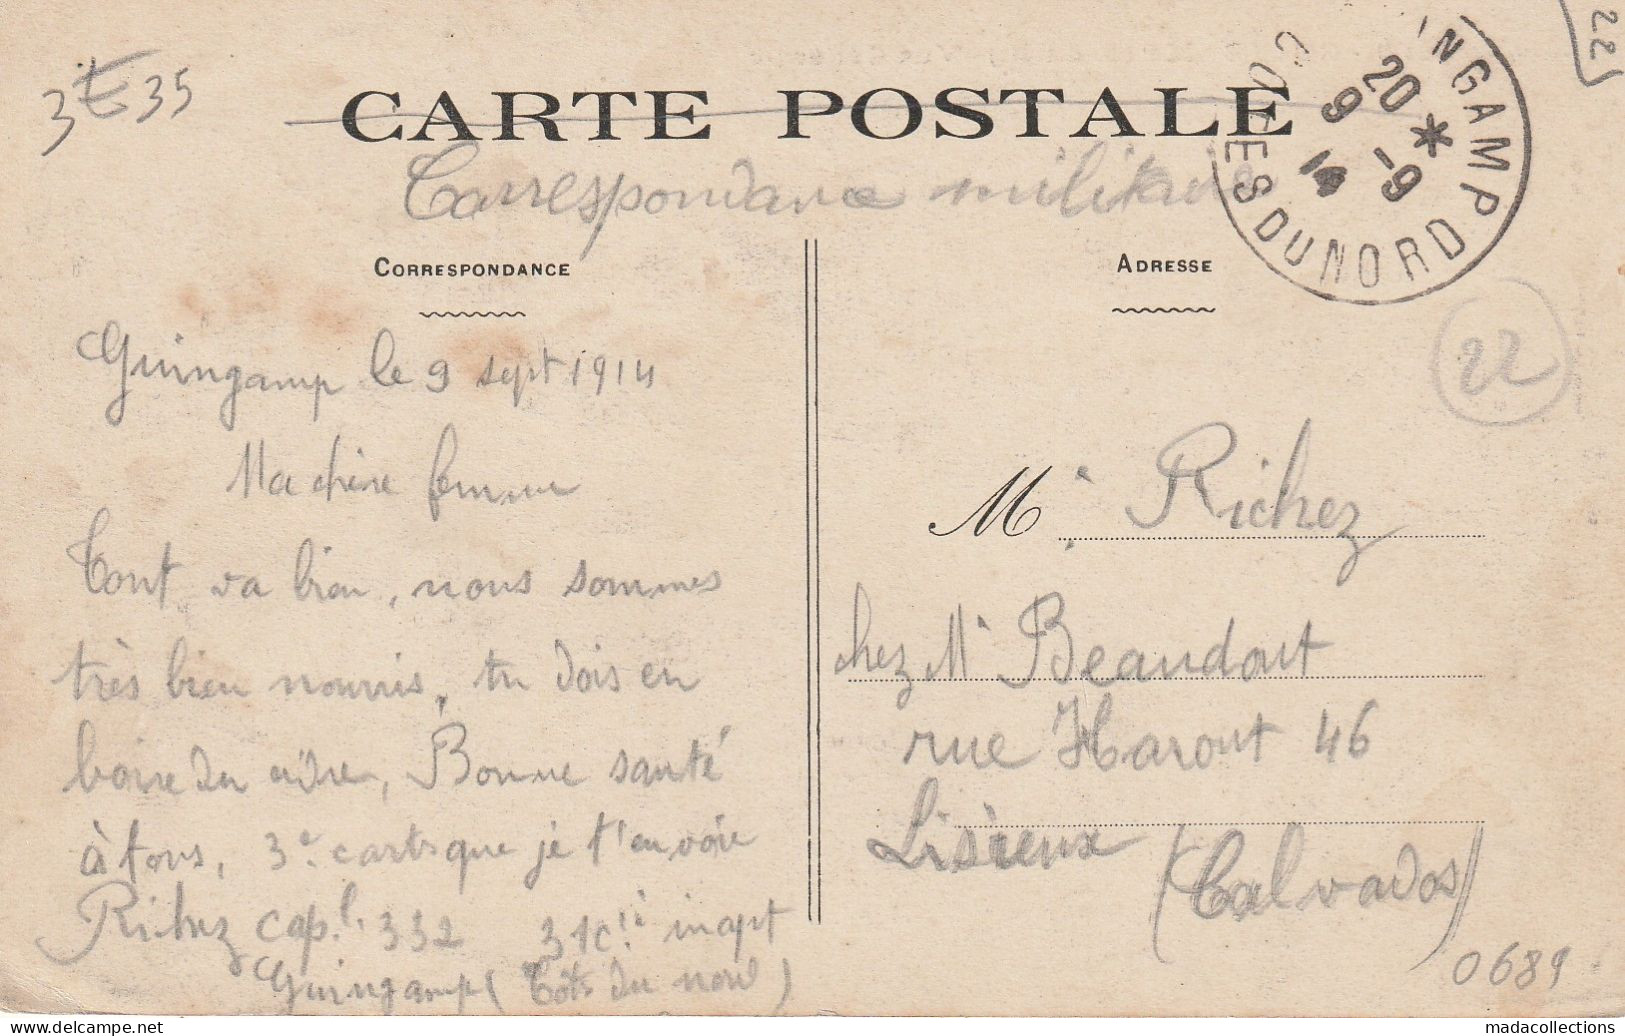 22
3E35
CARTE POSTALE
Correspondance militaire
INGAMP
COTES DU NORD
20 * 
9 -9
14
CORRESPONDANCE
ADRESSE
22
Guingamp le 9 sept 1914
Ma chère femme
Tout va bien, nous sommes
très bien nourris, tu dois en
boire du cidre, Bonne santé
à tous, 3e carte que je t'envoie
Richez cap.l 332 31 Cie inapt
Guingamp (Côtes du nord)
Me Richez
chez Me Beaudout
rue Harout 46
Lisieux (Calvados)
0689
madacollections
delcampe.net